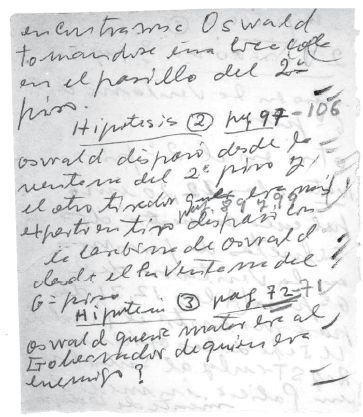 encontrase Oswald
tomandose una coca cola
en el pasillo del 2º
piso.
Hipotesis ② pag 97-106
oswald disparó desde la
ventana del 2º piso y
el otro tirador que era mas
experto en tiro disparó con
la carabina de oswald
desde el ventana del
6º piso
Hipotesis ③ pag 72-71
oswald queria matar era al
Gobernador de quien era
enemigo?